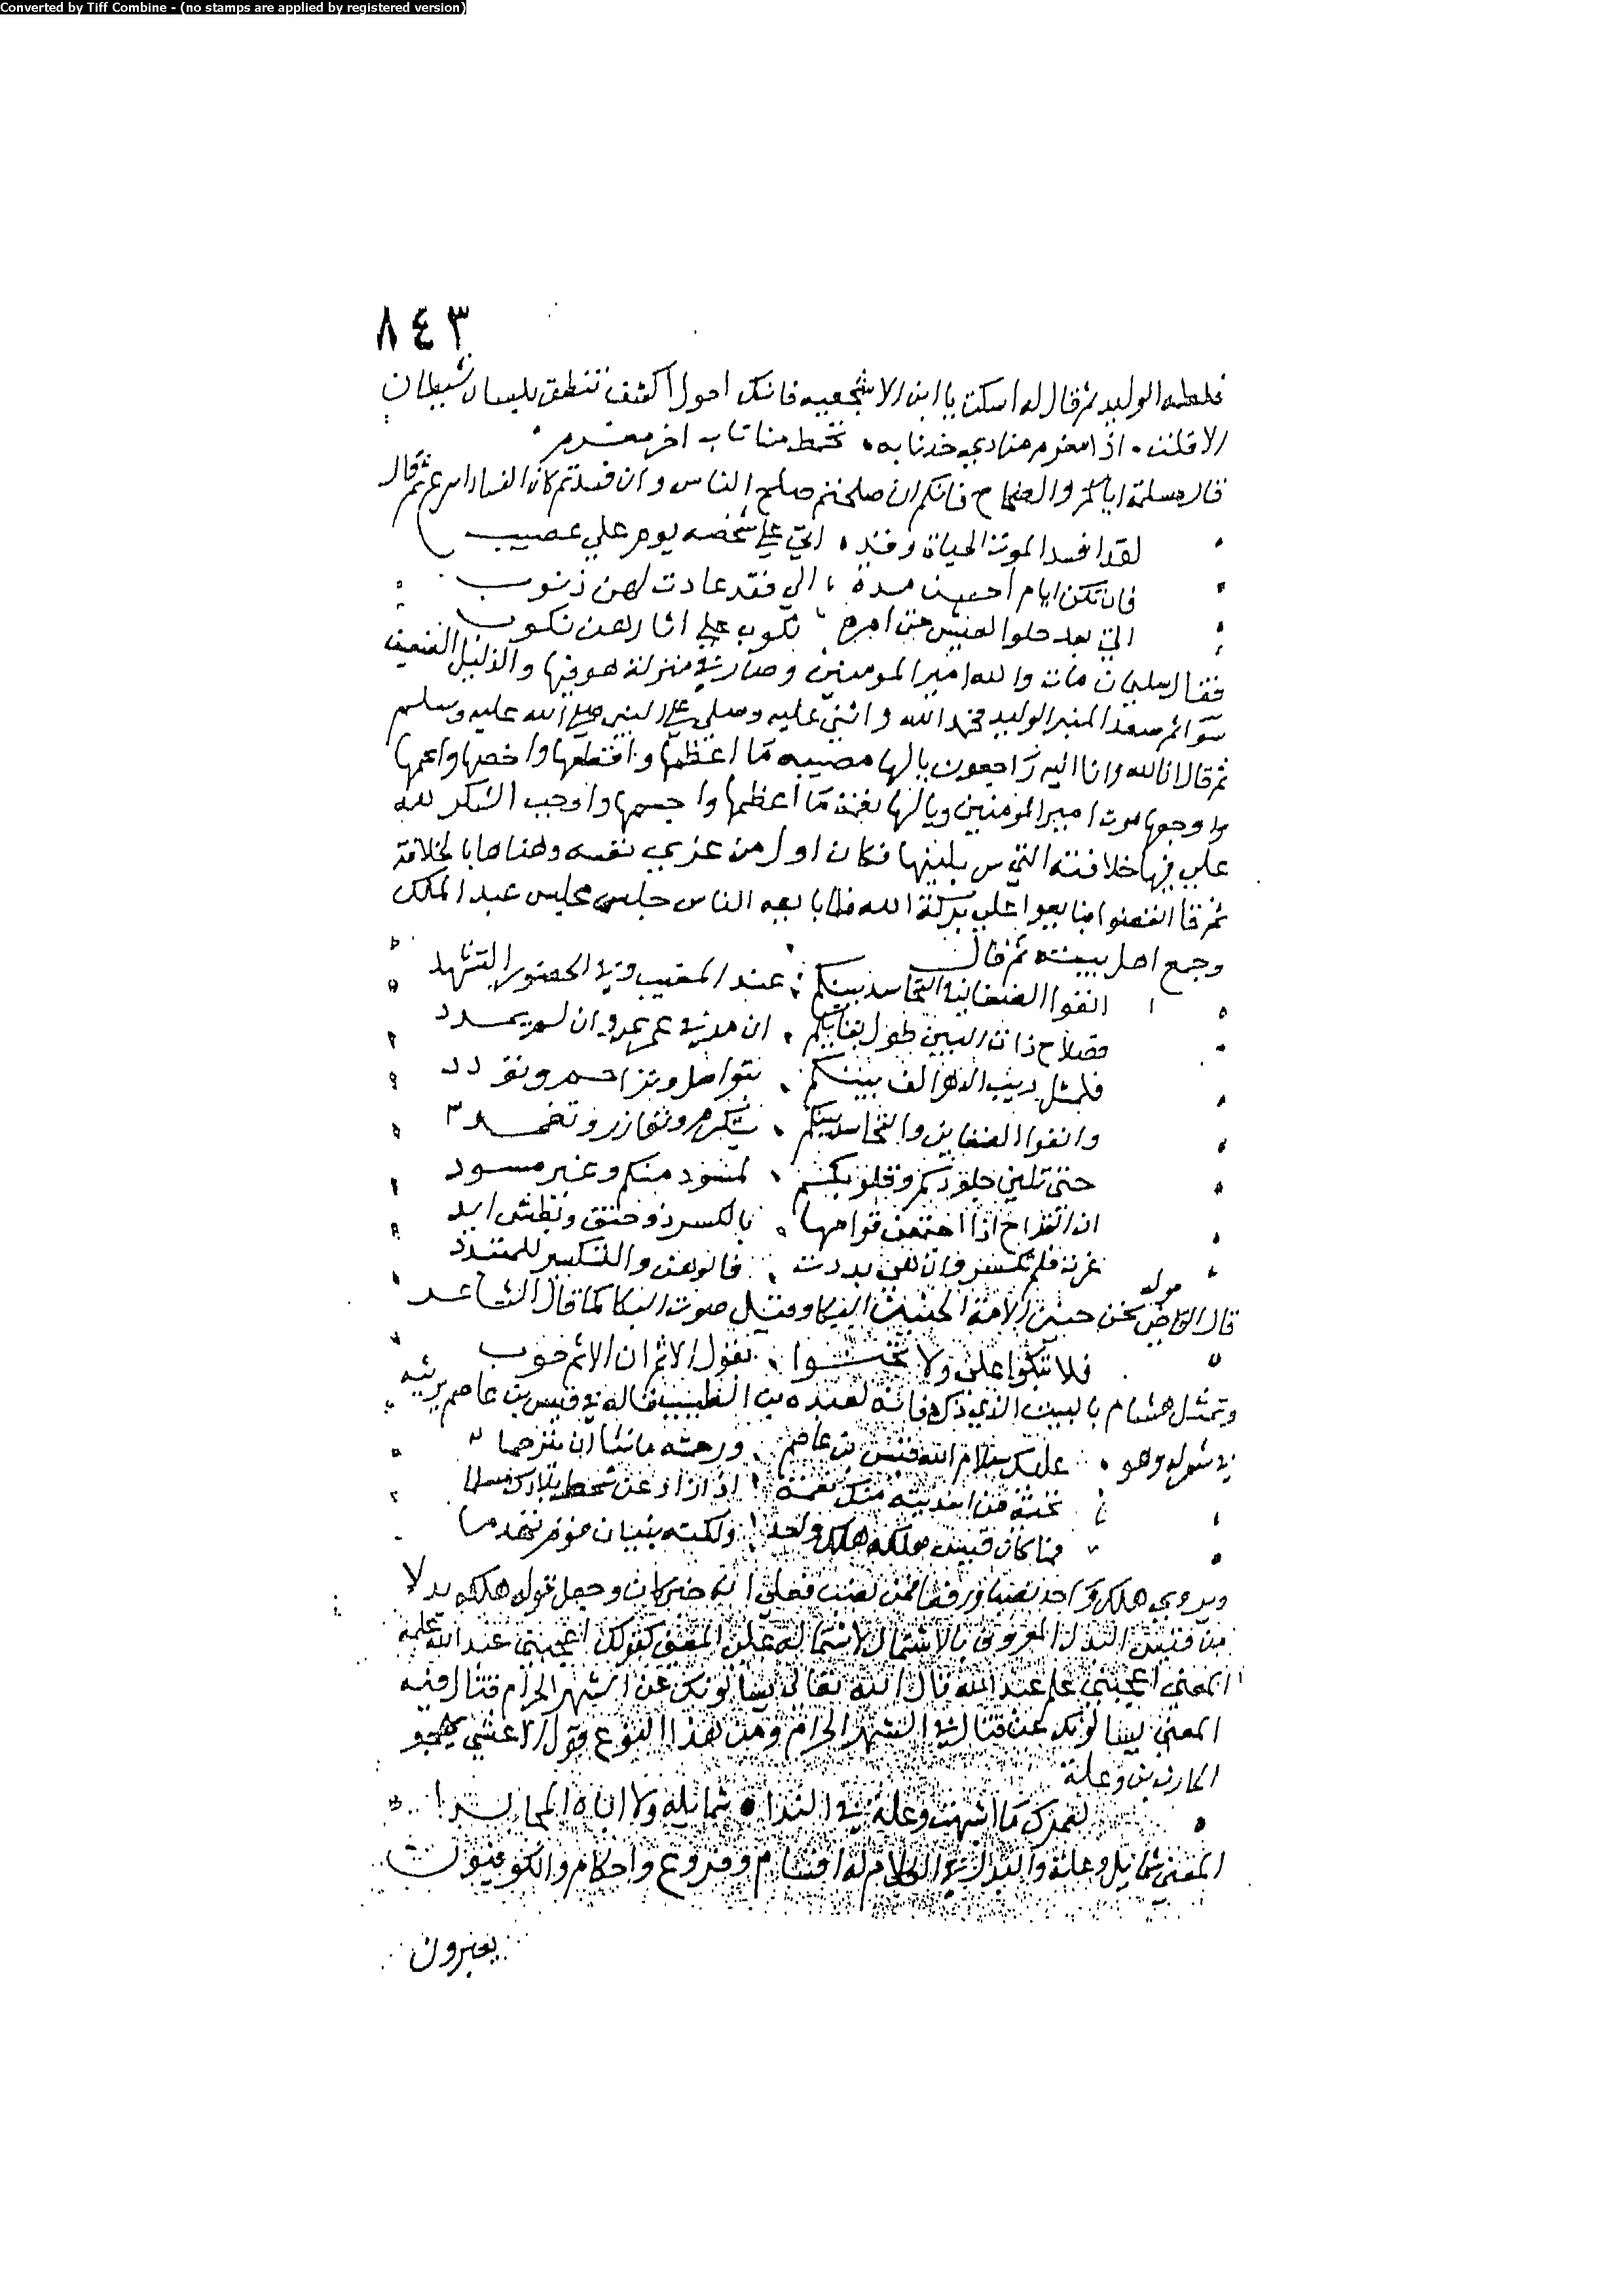 Converted by Tiff Combine - (no stamps are applied by registered version)
٨٤٣
فلطمه الوليد ثم قال له اسكت يا ابن الاشجعيه فانك احول اكشف تنطق بلسان شيطان
الا قلت . اذا مقرم منا ذري حد نابه . تخمط منا ناب اخر مقرم .
قال مسلمة اياكم والصياح فانكم ان صلحتم صلح الناس وان فسدتم كان الفساد اسرع ثم قال
لقد افسد الموت الحياة وقد . اتى على شخصه يوم علي عصيب
فان تكن ايام احسن مدة ، الي فقد عادت لهن ذنوب
اتى بعد حلو العيش حتى امره نكوب على اثارهن نكوب
فقال سليمان مات والله امير المومنين وصار في منزلة هو فيها والذليل الضعيف
سوا ثم صعد المنبر الوليد فحمد الله واثنى عليه وصلى على النبي صلى الله عليه وسلم
ثم قال انا لله وانا اليه راجعون يا لها مصيبه ما اعظمها وافظعها واخصها واعمها
واوجعها موت امير المؤمنين ويا لها نعمة ما اعظمها واجسمها واوجب الشكر لله
علي فيها خلافته التي سربلنيها فكان اول من عزى نفسه وهناها بالخلافة
ثم قال انهضوا فبايعوا على بركة الله فلما بايعه الناس جلس مجلس عبد الملك
وجمع اهل بيته ثم قال
انفوا الضغائن والتحاسد بينكم : عند المغيب وفي الحضور الشهد
فصلاح ذات البين طول بقايكم . ان مد في عمري وان لم يمدد
فلمثل ريب الدهر الف بينكم . بتواصل وتراحم وتودد
وانفوا الضغاين والتحاسد بينكم . بتكرم وتوازر وتغمد
حتى تلين جلودكم وقلوبكم . لمسود منكم وغير مسود
ان القداح اذا اجتمعن فرامها . بالكسر ذو حنق وبطش ايد
عزت فلم تكسر وان هي بددت . فالوهن والتكسير للمتبدد
قال القاضي قوله نحن حنين الامة الخنين البكا وقيل صوت البكا كما قال الشاعر
فلا تبكوا علي ولا تخنوا . بقول الاثم ان الاثم حوب
وتمثل هشام بالبيت الذي ذكره فانه لعبده بن الطبيب قاله في قيس بن عاصم يرثيه
في شعر له وهو . عليك سلام الله قيس بن عاصم . ورحمته ما شا ان يترحما
تحية من اهديته منك نعمة ! اذا زار عن شحط بلادك سلما
فما كان قيس هلكه هلك واحد ! ولكنه بنيان قوم تهدما
ويروى هلك واحد نصبا ورفعا فمن نصب فعلى انه خبر كان وجعل قوله هلكه بدلا
من قيس البدل المعروف بالاشتمال لاشتماله على المعنى كقولك اعجبني عبد الله علمه
المعنى اعجبني علم عبد الله قال الله تعالى يسالونك عن الشهر الحرام قتال فيه
المعنى يسالونك عن قتال في الشهر الحرام ومن هذا النوع قول الاعشى يهجو
الحارث بن وعلة
لعمرك ما اشبهت وعلة في الندا . شمايله ولا اباه المجالدا
المعنى شمايل وعلة والبدل في الكلام له اقسام وفروع واحكام والكوفيون
يعبرون